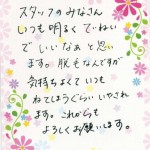 スタッフのみなさん
いつも明るく ていねい
で いいなぁと思い
ます。脱毛なんですが
気持ちよくて いつも
ねてしまうぐらい いやされ
ます。これからも
よろしくお願いします。